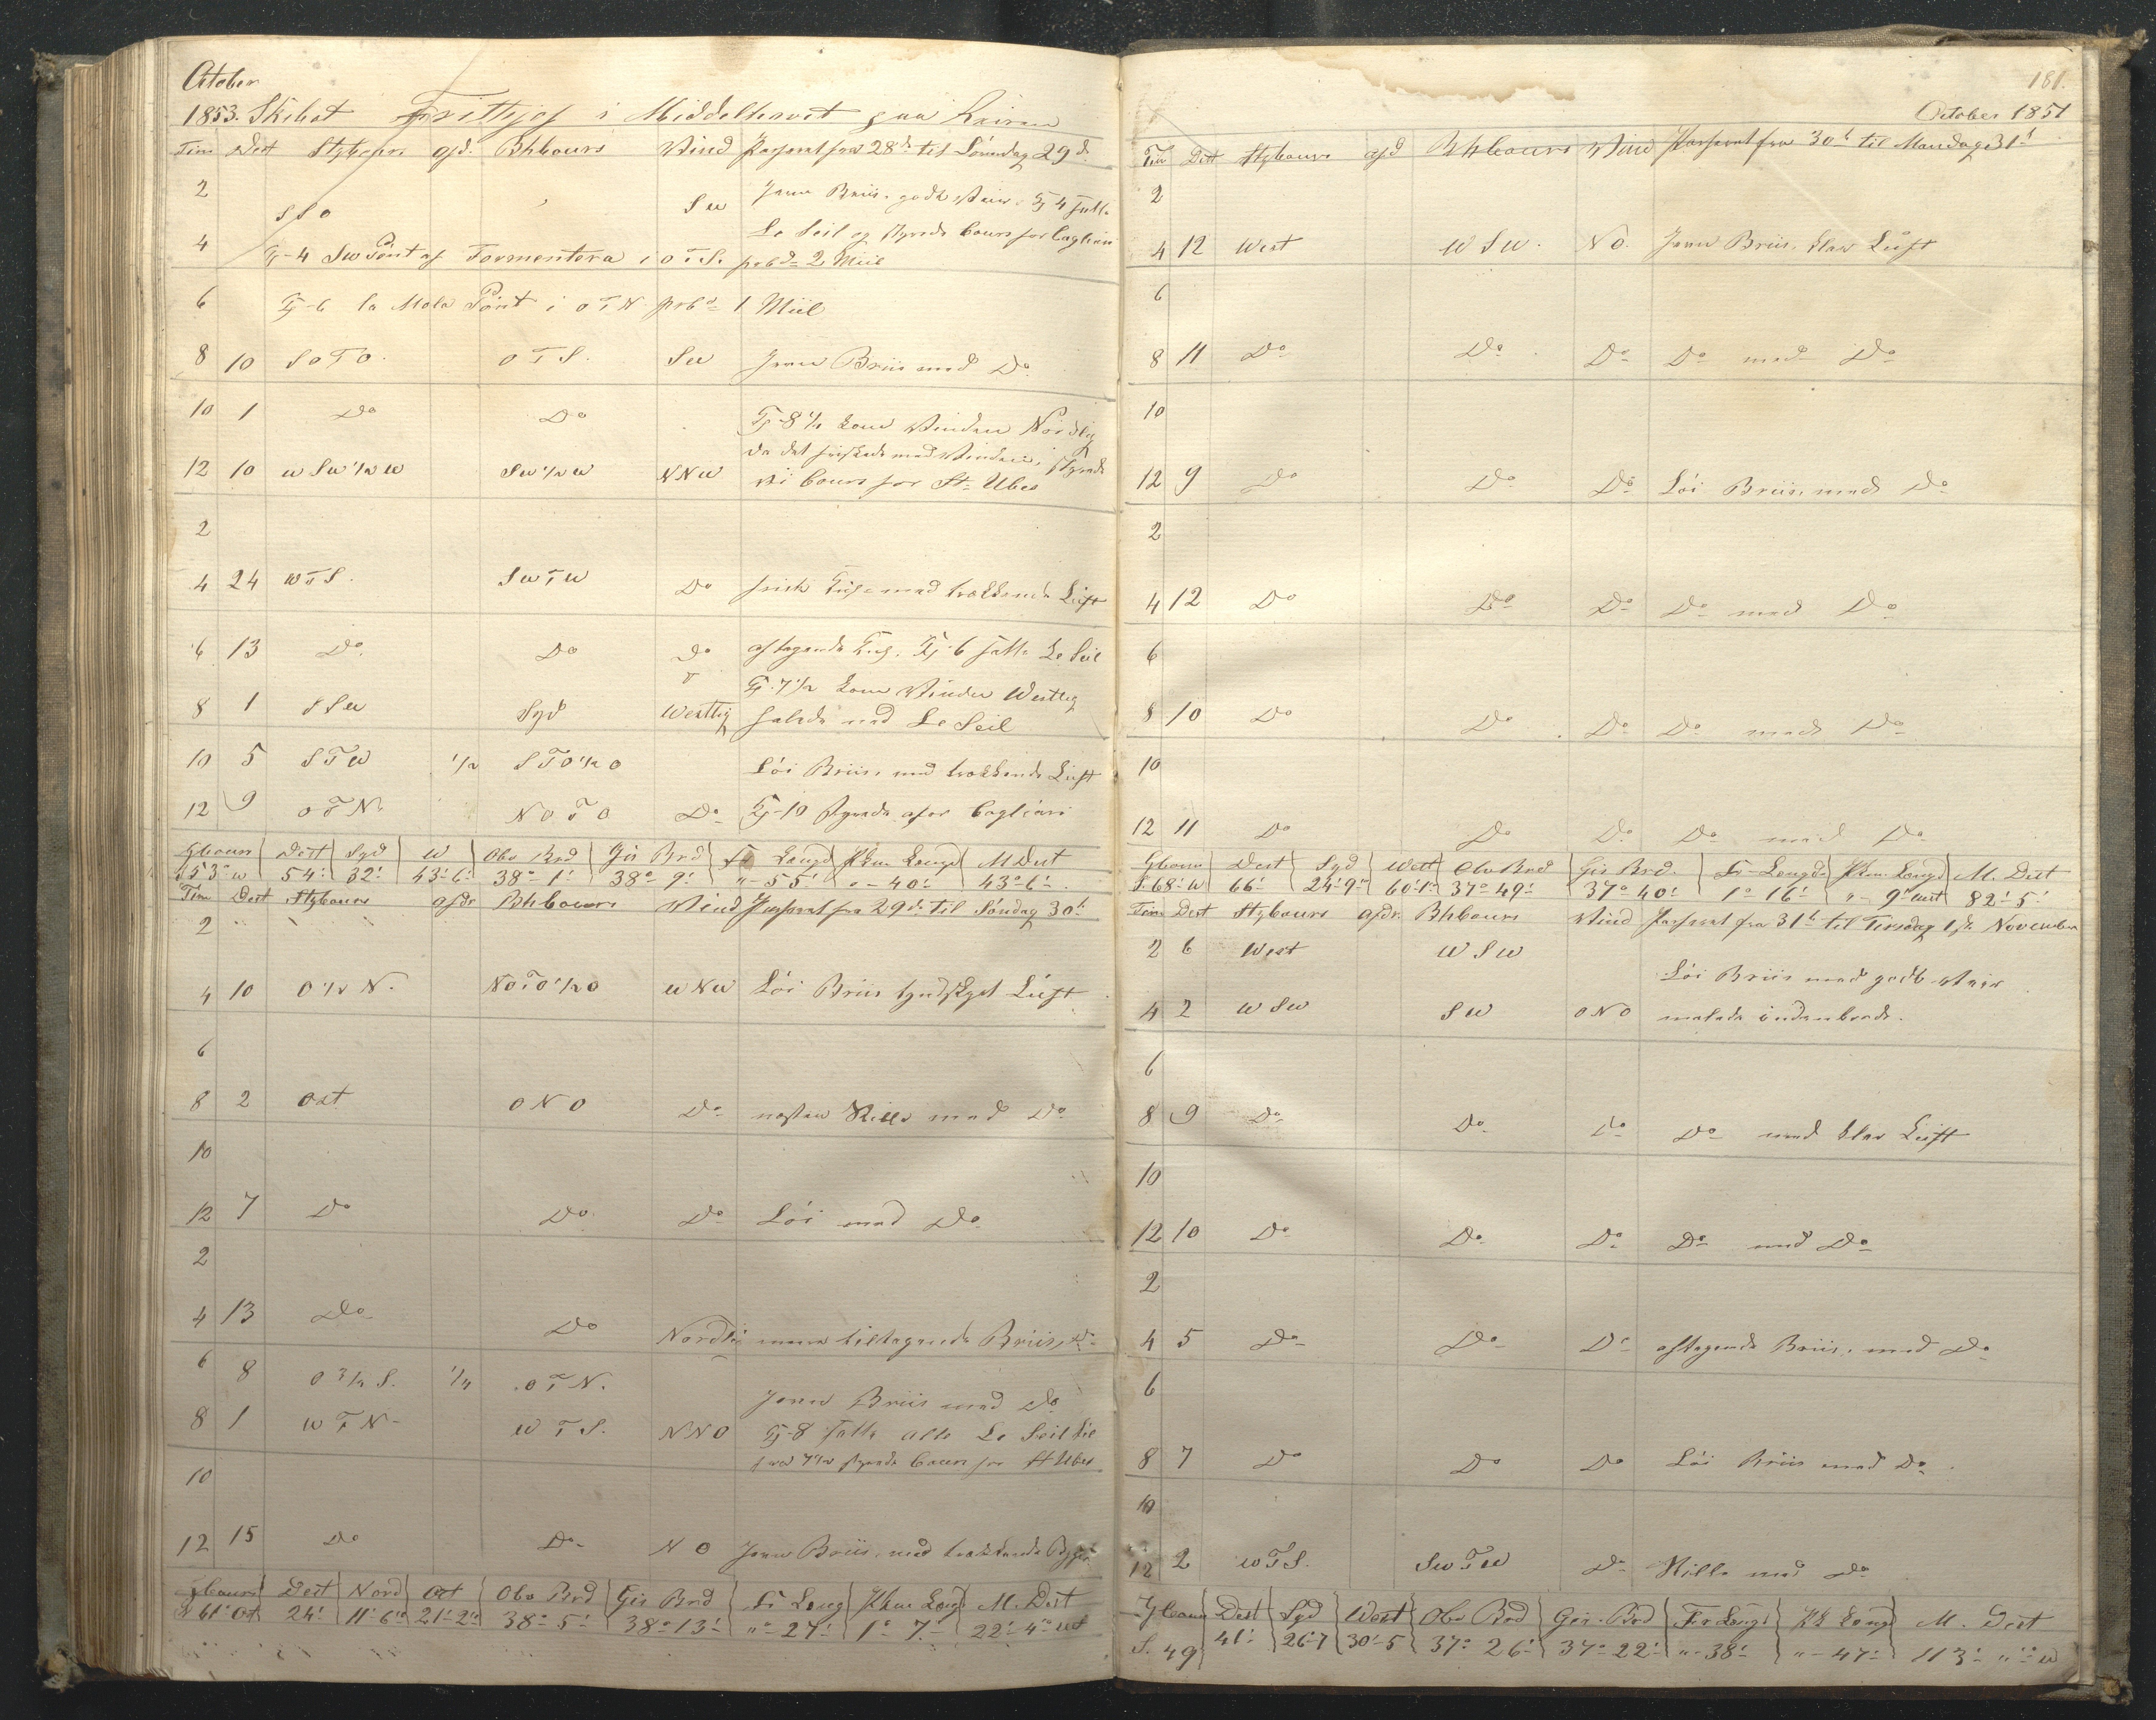 October
1853. Skibet Frithjof i Middelhavet paa
Tim Dest Stybours afd. Bhbours Wind Passerat fra 28de til Lörndag 29d.
2 SSO SW Jevn Briis, godt Veir. Kl 4 satte
Le Seil og styrede Cours for Cagliari
4 Kl-4 SW Pönt af Formentera i OTS. 2 Miil
6 Kl-6 la Mola Pönt i OTN 1 Miil
8 10 SOTO. OTS. SW Jevn Briis med Do
10 1 Do Do Kl-8½ kom Vinden Nordlig
da det friskede med Vinden, styrede
12 10 WSW½W SW½W NNW vi Cours for St. Ubes
2
4 24 WTS. SWTW Do frisk med trækkende Luft
6 13 Do. Do Do aftagende Kl-6 satte Le Seil
Kl. 7½ kom Vinden Westlig
8 1 SSW Syd Westlig med Le Seil
10 5 STW ½ STO½O Löi Briis, med trækkende Luft
12 9 OTN. NOTO Do Kl-10 Styrede Cagliari
Gbours Dest Syd W Obs Brd Gis Brd Længd Længd M Dest
S53°W 54' 32' 43'6' 38°1' 38°9' "-55' "-40' 43°6'
Tim Dest Stybours afdr Bhbours Wind Passerat fra 29de til Söndag 30t.
2
4 10 O½N. NOTO½O WNW Löi Briis tyndskyet Luft
6
8 2 Ost ONO Do næsten Stille med Do
10
12 7 Do Do Do Löi med Do
2
4 13 Do Do Nordli tiltagende Briis, Do
6 8 O¾S. ¼ OTN. Jevn Briis med Do
8 1 WTN- WTS. NNO Kl-8 satte alle Le Seil til
styrede Cours for St Ubes
10
12 15 Do Do NO Jevn Briis, med trækkende
Gbours Dest Nord Ost Obs Brd Gis Brd Læng Læng M. Dest
N61°Ost 24' 11'6" 21'2" 38°5' 38°13' "°-27' 1°7' 22'4"
181.
October 1851
Tim Dest Stybours afd Bhbours Wind Passerat fra 30t til Mandag 31t
2
4 12 West WSW. NO. Jevn Briis, klar Luft
6
8 11 Do Do Do Do med Do
10
12 9 Do Do Do Löi Briis, med Do
2
4 12 Do Do Do Do med Do
6
8 10 Do Do Do Do med Do
10
12 11 Do Do Do Do med Do
Gbours Dest Syd West Obs Brd Gis Brd. Længd Længd M. Dest
S.68°W 66' 24'9" 60'1" 37°49' 37°40' 1°16' "-9' 82'5'
Tim Dest Stybours afdr. Bhbours Wind Passerat fra 31t til Tirsdag 1ste November
2 6 West WSW Löi Briis med godt Veir
4 2 WSW SW ONO malede indenborde.
6
8 9 Do Do Do Do med klar Luft
10
12 10 Do Do Do Do med Do
2
4 5 Do Do Do aftagende Briis, med Do
6
8 7 Do Do Do Löi Briis med Do
10
12 2 WTS. SWTW Do Stille med Do
Gbours Dest Syd West Obs Brd Gis. Brd Længd Længd M. Dest
S. 49 41' 26'7 30'5 37°26' 37°22' "-38' "-47' 113' W